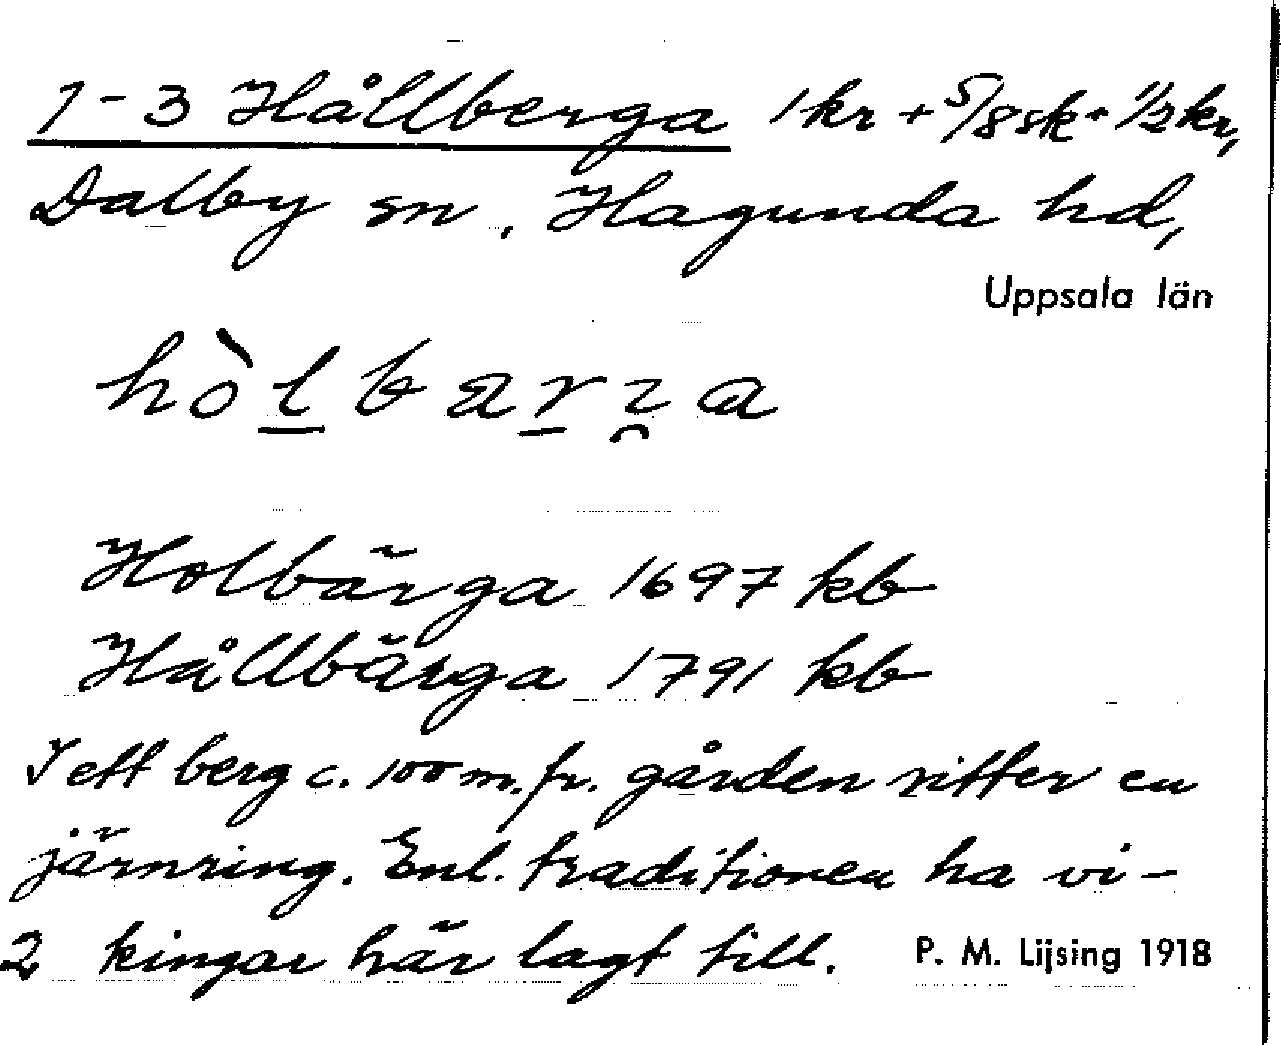 1-3 Hållberga 1 kr + 5/8 sk + 1/2 kr,
Dalby sn, Hagunda hd,
Uppsala län
Holbärga 1697 kb
Hållbärga 1791 kb
I ett berg c. 100 m. fr. gården sitter en
järnring. Enl. traditionen ha vi-
2 kingar här lagt till. P. M. Lijsing 1918